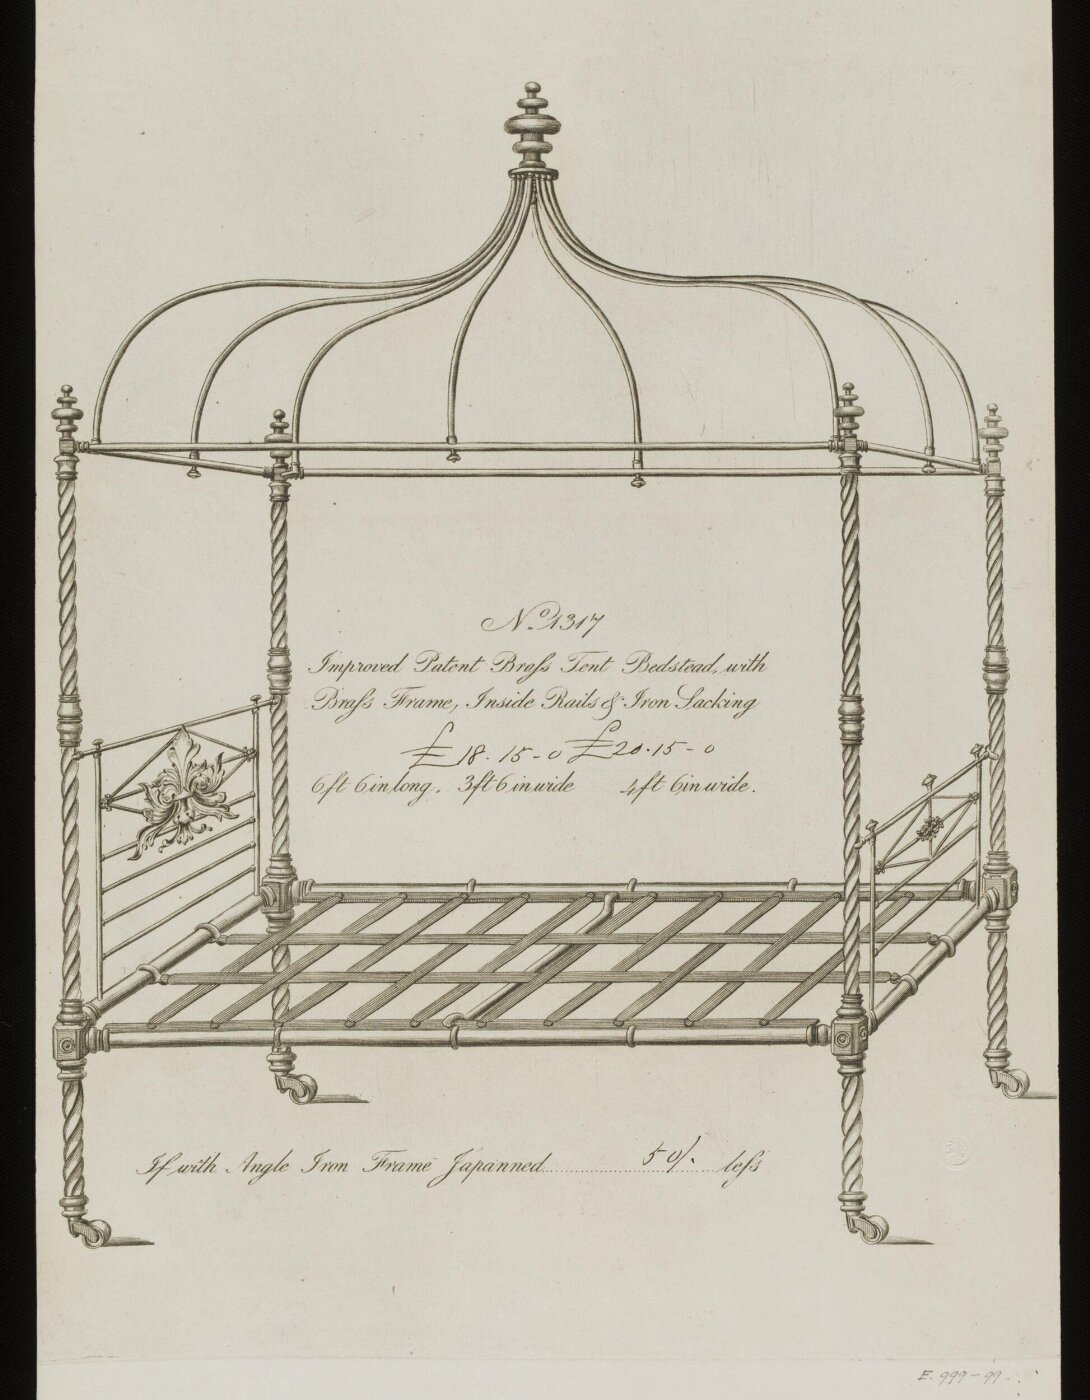 No. 1317
Improved Patent Braſs Tent Bedstead, with
Braſs Frame, Inside Rails & Iron Lacking
£18.15-0 £20.15-0
6ft 6in long. 3ft 6in wide 4ft 6in wide.
If with Angle Iron Frame Japanned 50/. leſs
E.999-99.